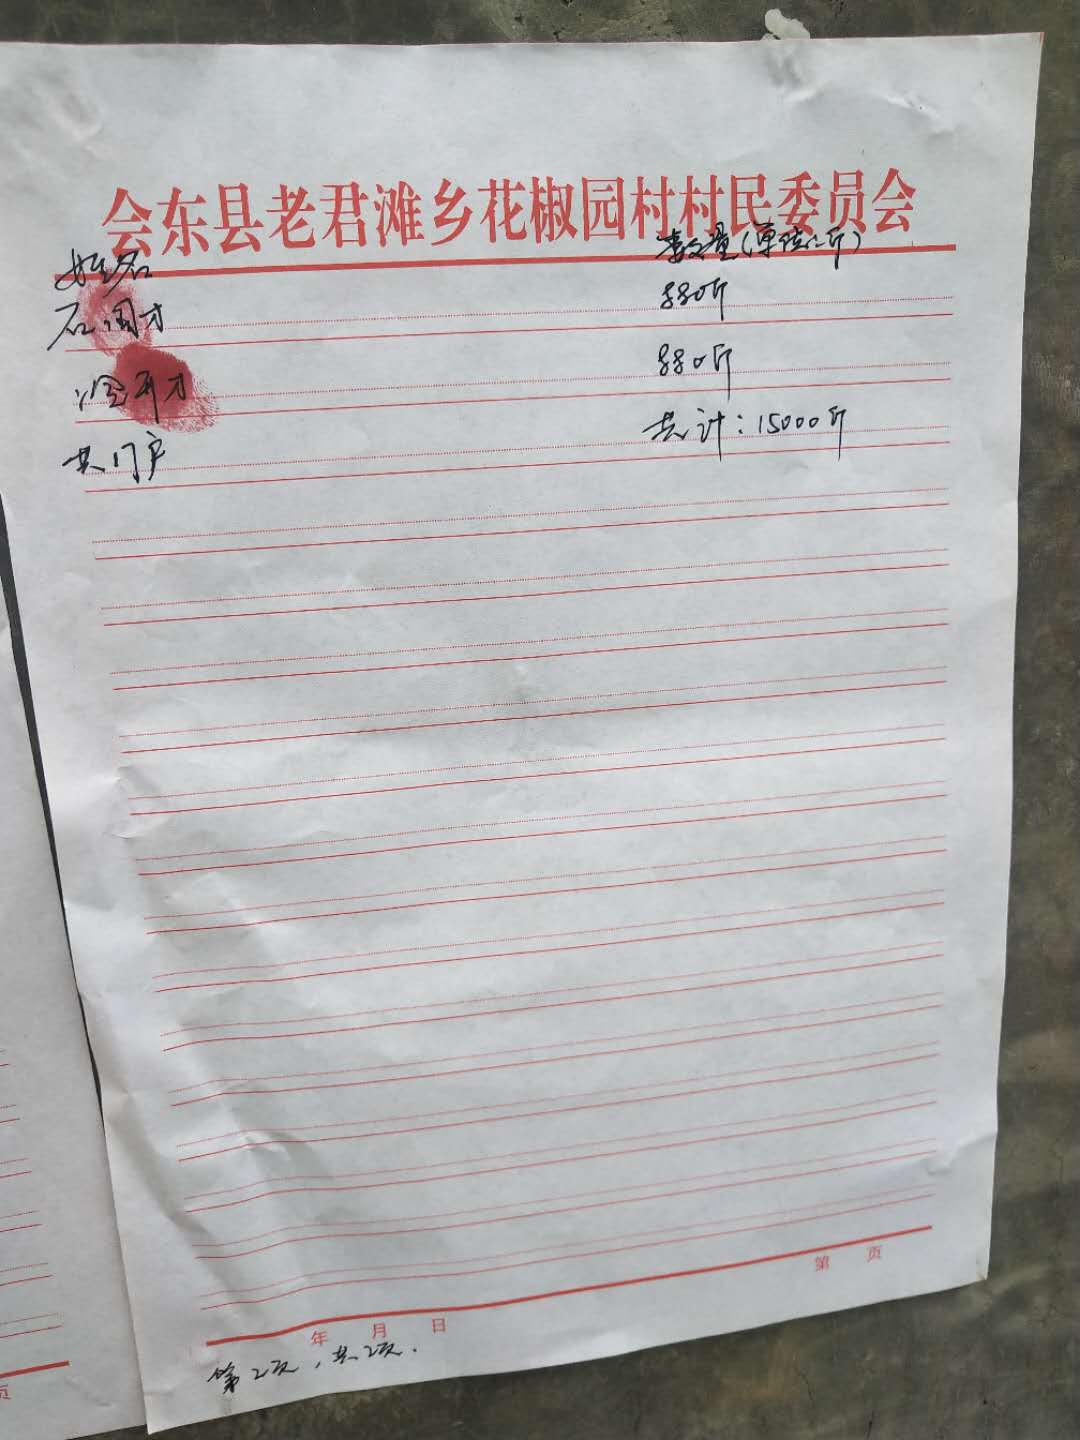 会东县老君滩乡花椒园村村民委员会
姓名 数量(单位:斤)
石国才 880斤
冷开才 880斤
共17户 共计:15000斤
第 页
年 月 日
第2页,共2页.
页